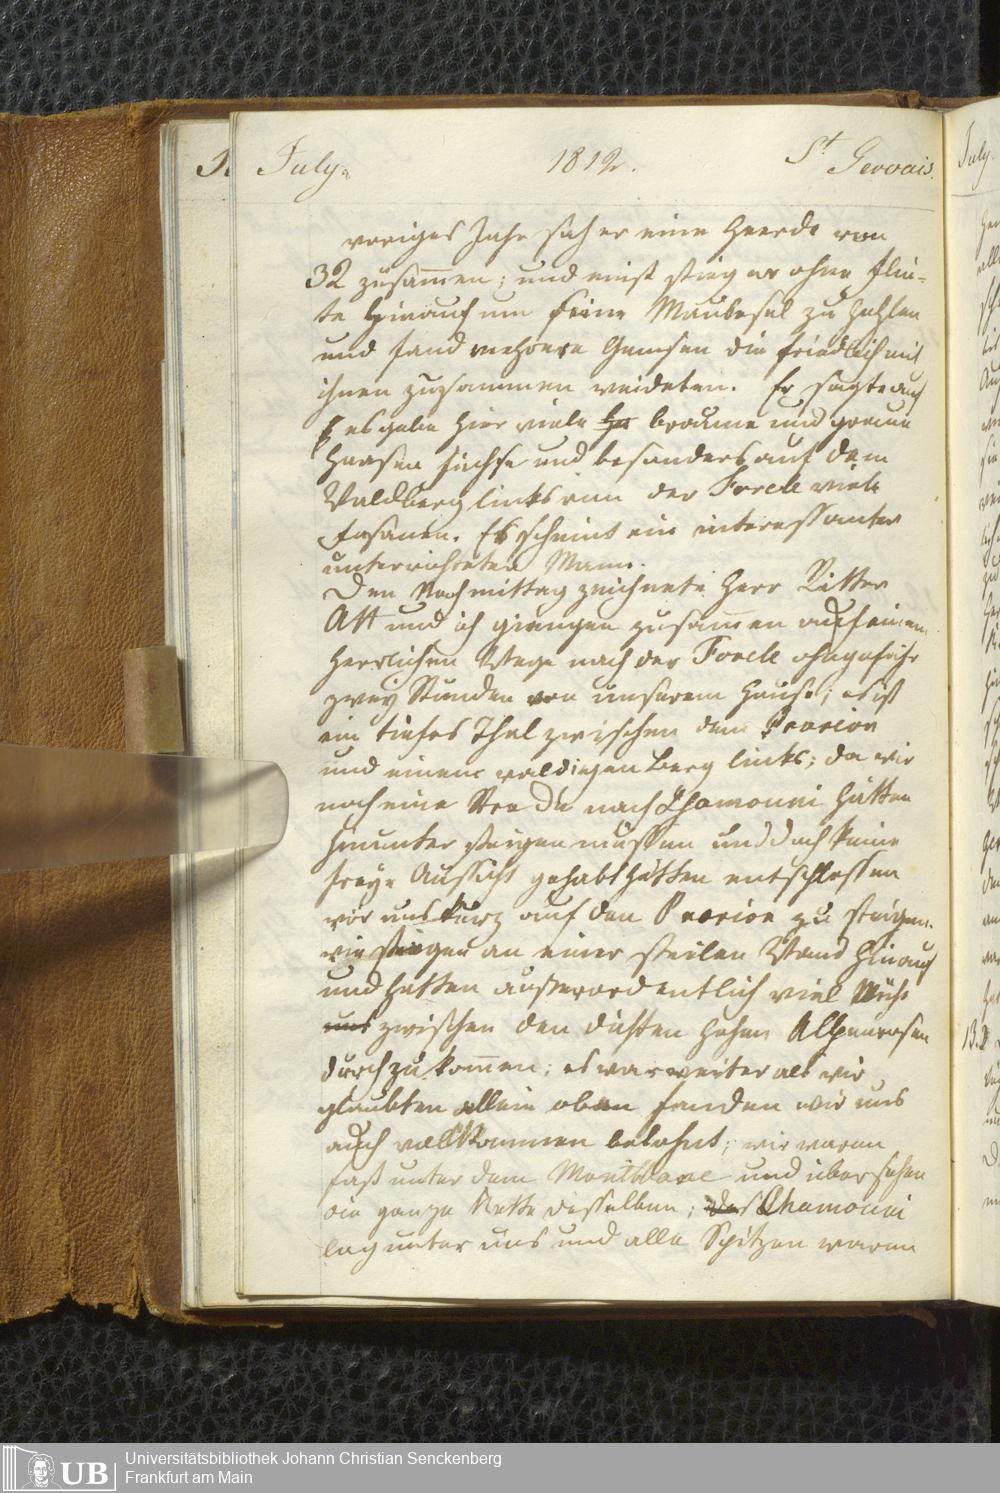 July.
1812.
St Gervais.
voriges Jahr sah er eine Heerde von
32 zusammen; und einst stieg er ohne Flin-
te hinauf um seine Maulesel zu hohlen
und fand mehrere Gemsen die friedlich mit
ihnen zusammen weideten. Er sagte auch
es gebe hier viele braune und graue
Haasen Füchse und besonders auf dem
Waldberg links von der Forcle viele
Fasanen. Er scheint ein interessanter
unterrichteter Mann.
Den Nachmittag zeichnete Herr Ritter
Att und ich giengen zusammen auf einem
herrlichen Wege nach der Forcle ohngefähr
zwey Stunden von unserem Hause; es ist
ein tiefes Thal zwischen dem Prarion
und einem waldigen Berg links; da wir
noch eine Strecke nach Chamouni hätten
hinunter steigen müssen und doch keine
freye Aussicht gehabt hätten entschlossen
wir uns kurz auf den Prarion zu steigen.
wir stiegen an einer steilen Wand hinauf
und hatten außerordentlich viel Mühe
uns zwischen den dichten hohen Alpenrosen
durchzukommen; es war weiter als wir
glaubten allein oben fanden wir uns
auch vollkommen belohnt; wir waren
fast unter dem Montblanc und übersahen
die ganze Kette desselben; das Chamouni
lag unter uns und alle Spitzen waren
July.
13.
UB
Universitätsbibliothek Johann Christian Senckenberg
Frankfurt am Main